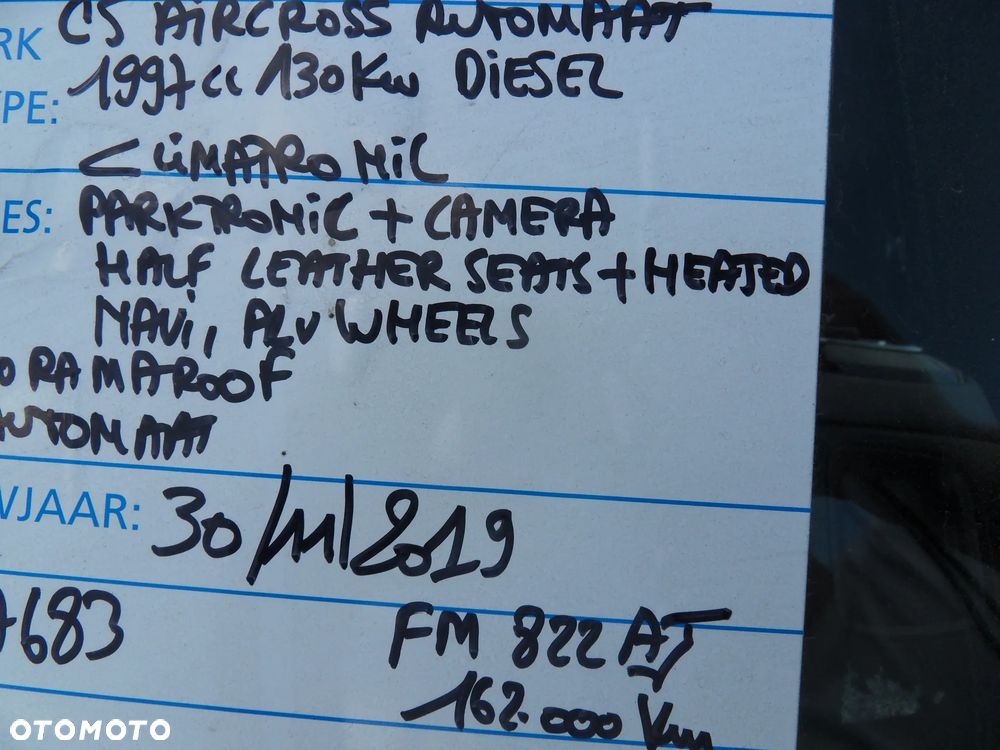 RK C5 AiRCROSS AUTOMAAT
YPE: 1997cc 130Kw DiESEL
CLiMATRONiC
ES: PARKTRONiC + CAMERA
HALF LEATHER SEATS + HEATED
NAVi, ALU WHEELS
ORAMAROOF
AUTOMAAT
WJAAR: 30/11/2019
7683 FM 822 AT
162.000 Km
OTOMOTO